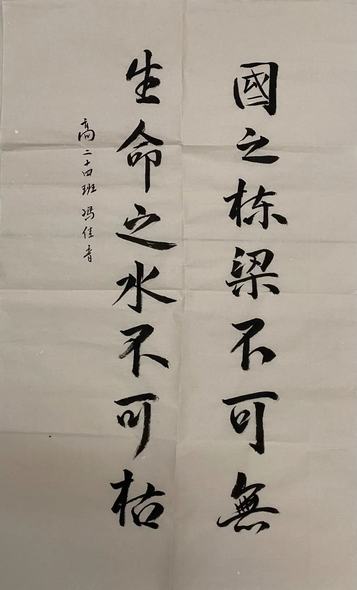 國之栋梁不可無
生命之水不可枯
高二十四班 冯佳音